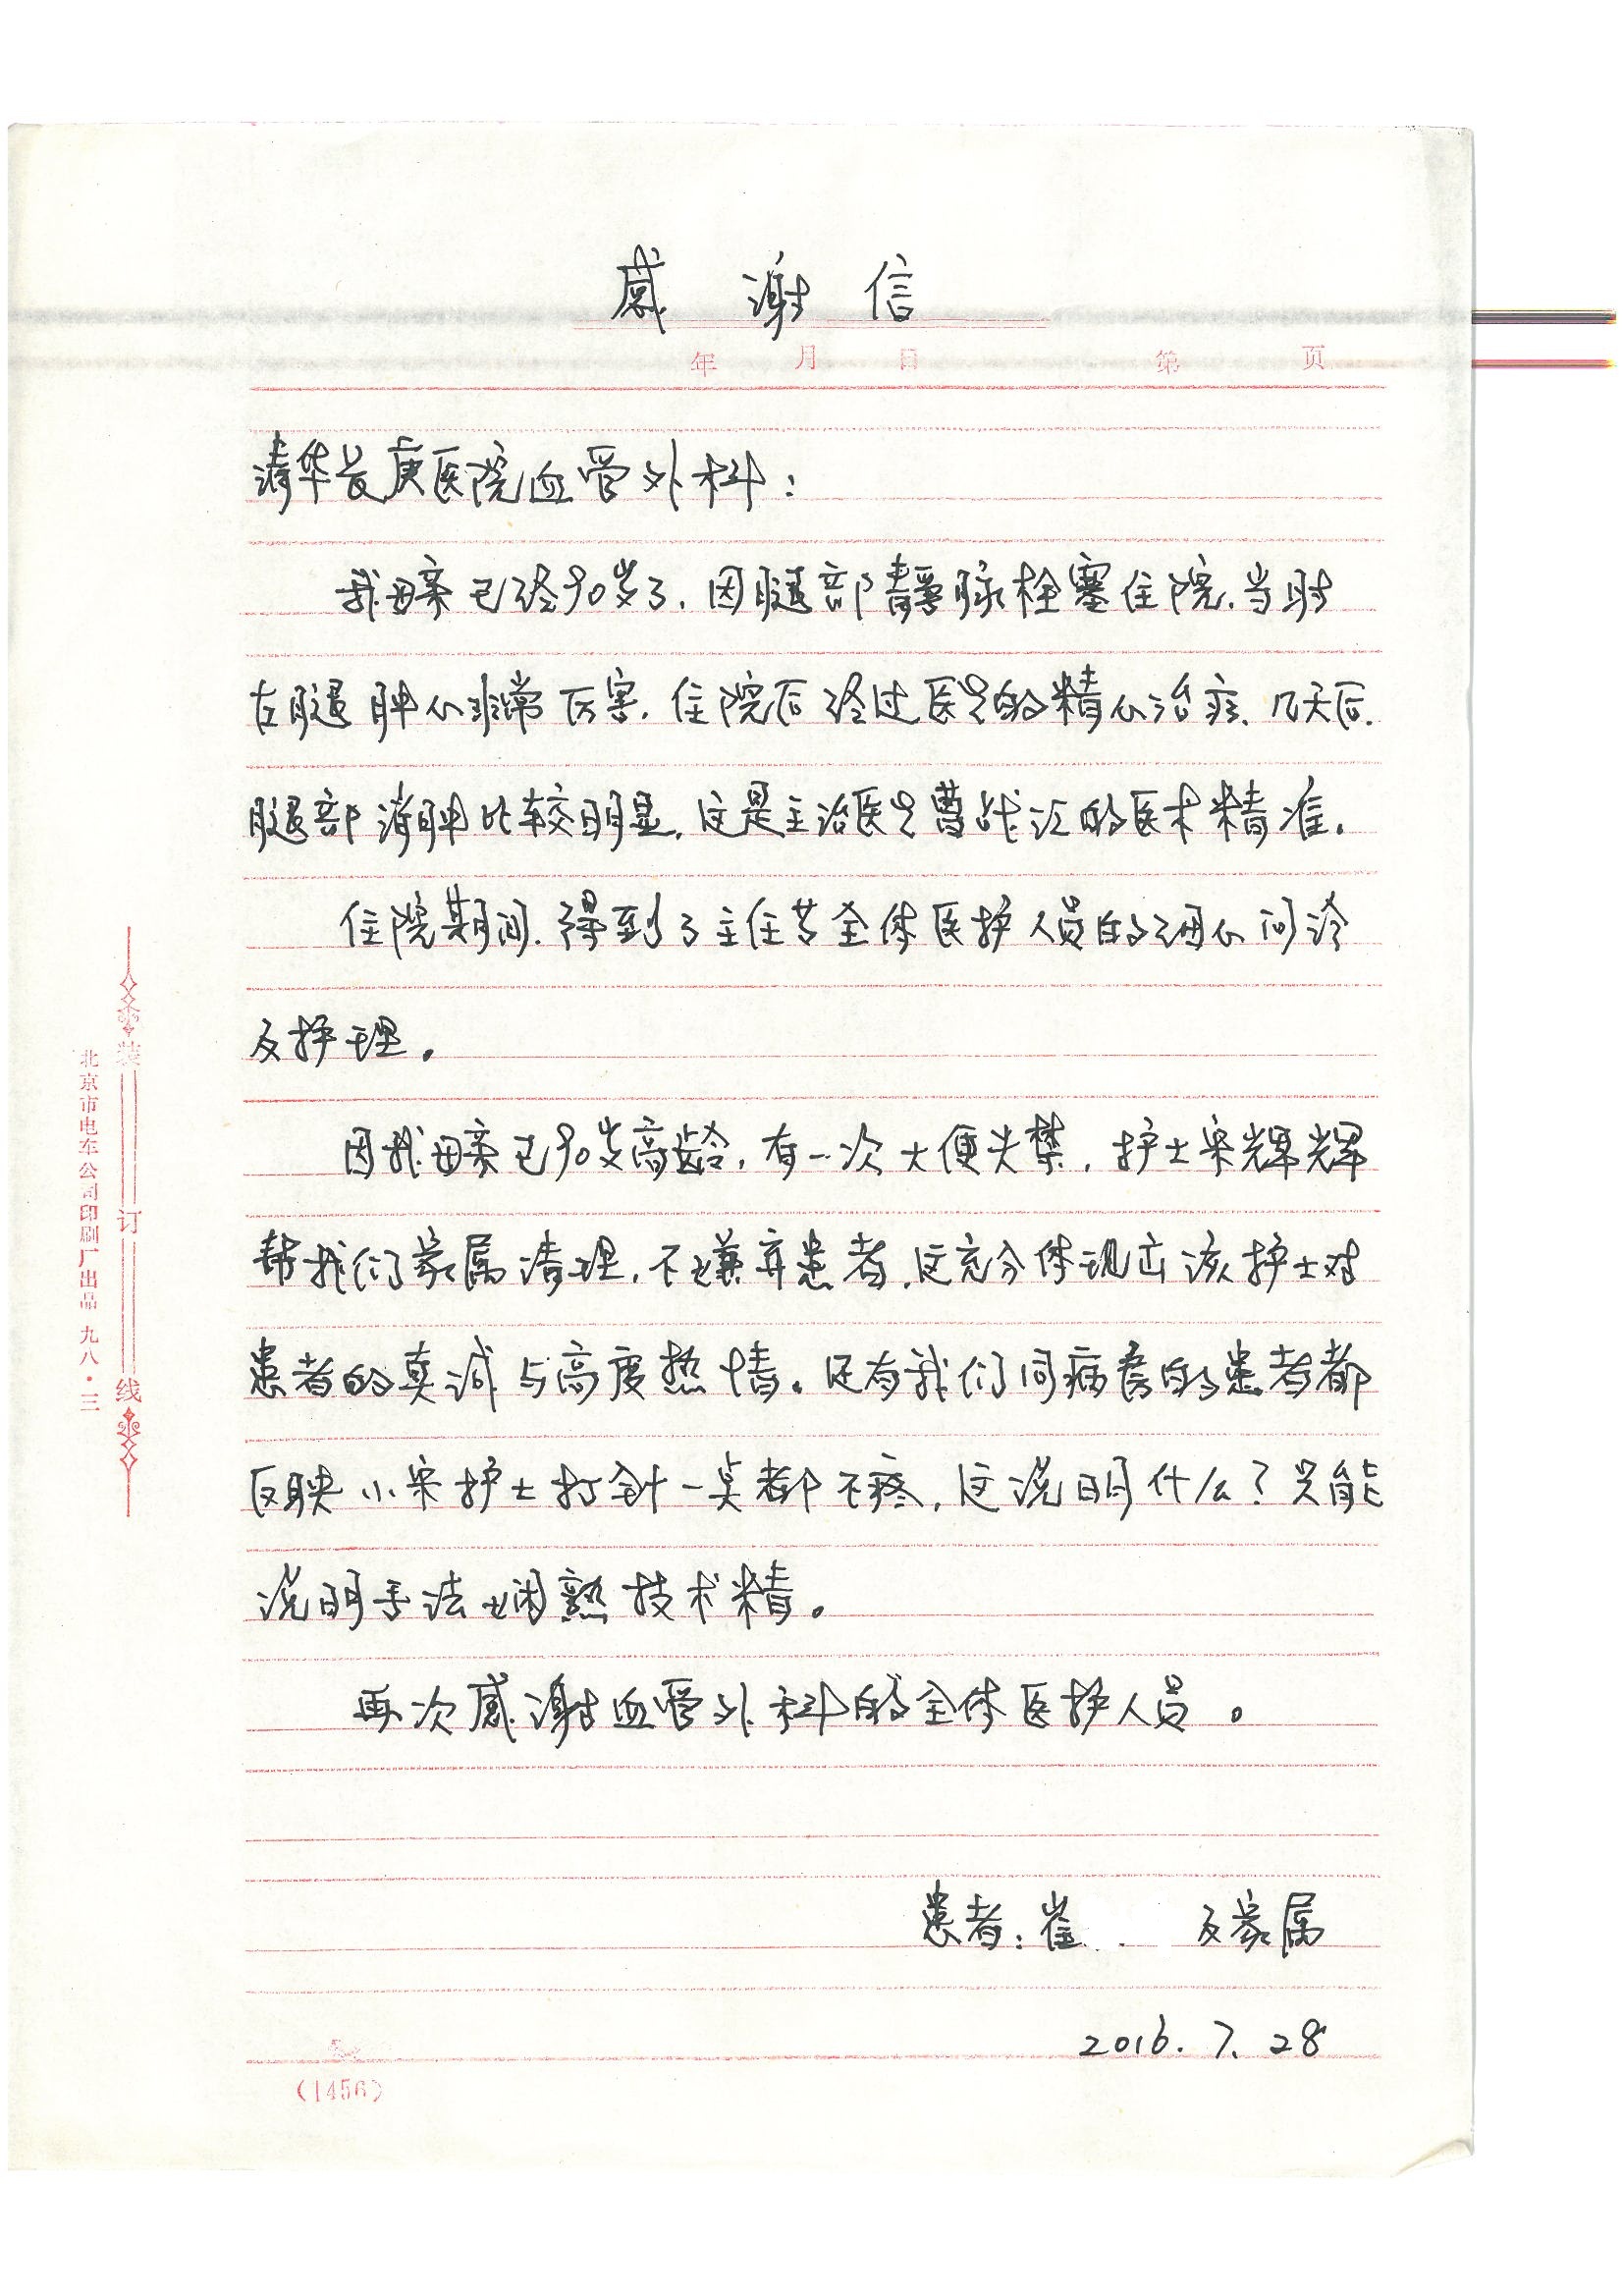 感谢信
年 月 日 第 页
清华长庚医院血管外科:
我母亲已经90岁了,因腿部静脉栓塞住院,当时
左腿肿的非常厉害,住院后经过医生的精心治疗,几天后,
腿部消肿比较明显,这是主治医生曹战江的医术精准。
住院期间,得到了主任等全体医护人员的细心问诊
及护理。
因我母亲已90岁高龄,有一次大便失禁,护士宋辉辉
帮我们家属清理,不嫌弃患者,这充分体现出该护士对
患者的真诚与高度热情。还有我们同病房的患者都
反映小宋护士打针一点都不疼,这说明什么?只能
说明手法娴熟技术精。
再次感谢血管外科的全体医护人员。
患者:崔 及家属
2016.7.28
(1456)
装订线
北京市电车公司印刷厂出品 九八·三